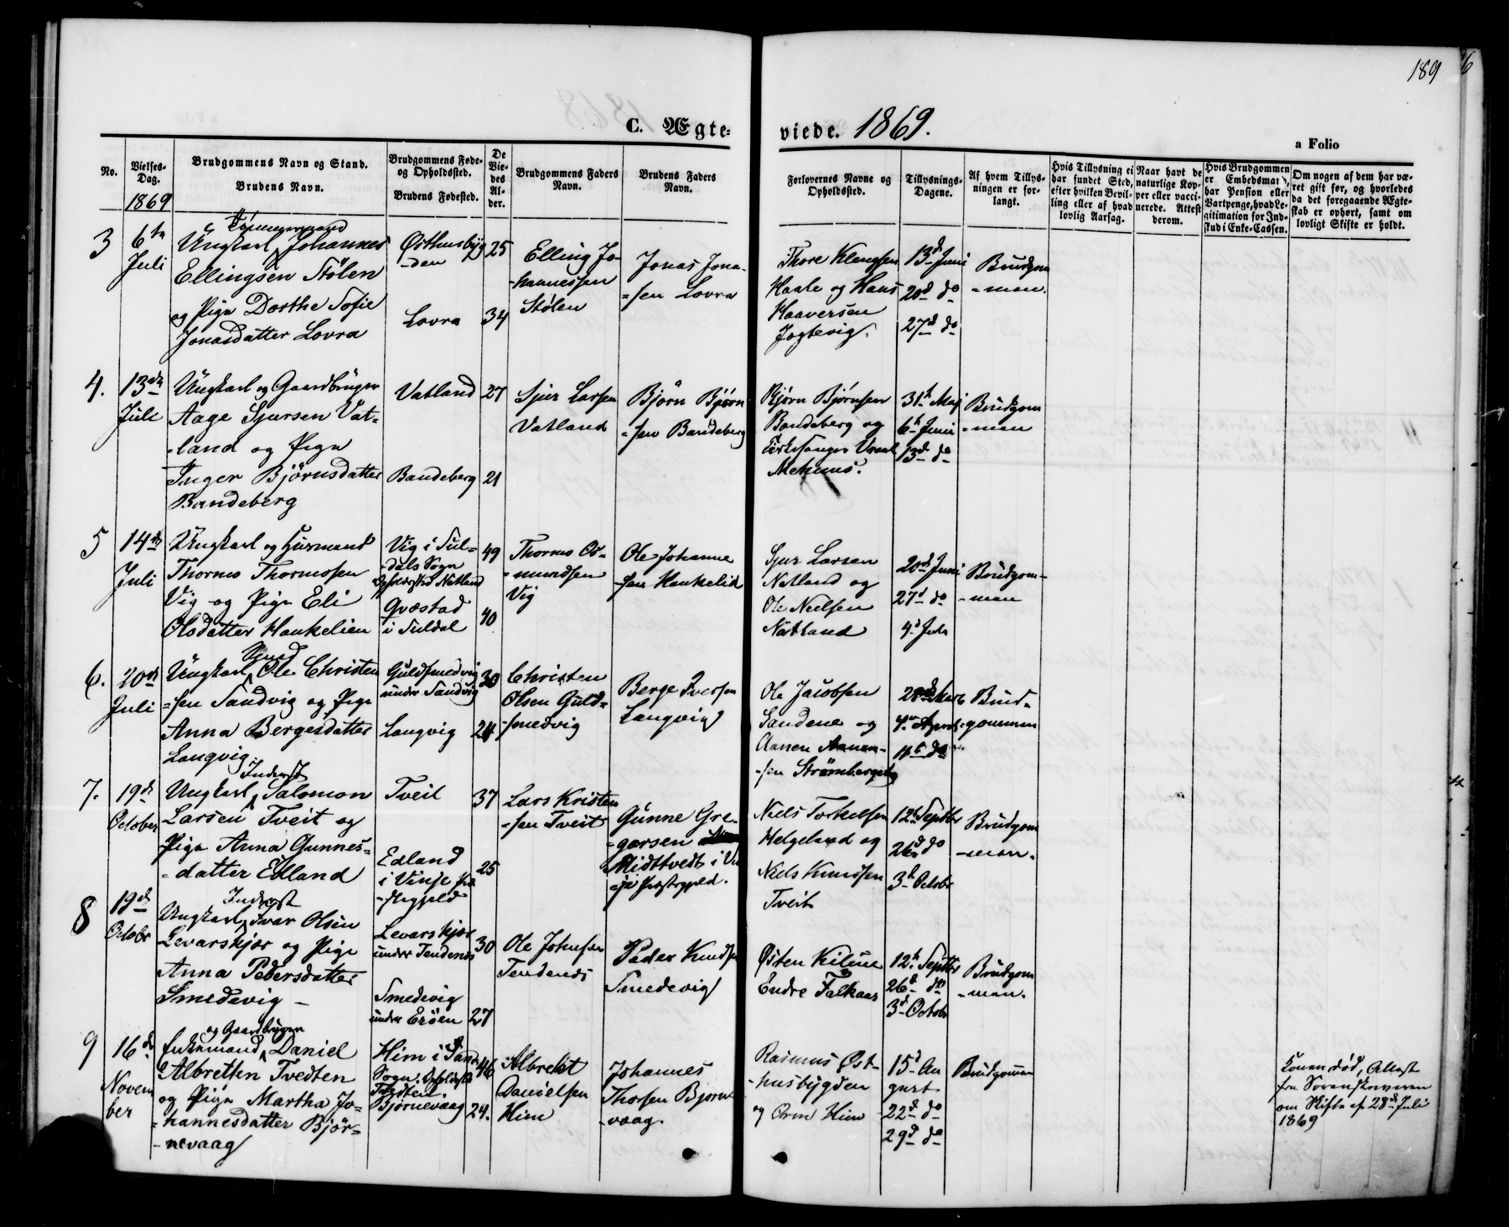 189
C. Ægte-
viede. 1869.
a Folio
No.
Vielses-
Dag.
1869
Brudgommens Navn og Stand.
Brudens Navn.
Brudgommens Føde-
og Opholdssted.
Brudens Fødested.
De
Vie-
des
Al-
der.
Brudgommens Faders
Navn.
Brudens Faders
Navn.
Forlovernes Navne og
Opholdssted.
Tillysnings-
Dagene.
Af hvem Tillys-
ningen er for-
langt.
Hvis Tillysning ei
har fundet Sted,
efter hvilken Bevil-
ling eller af hvad
lovlig Aarsag.
Naar havt de
naturlige Kop-
per eller vacci-
nerede. Attest
derom.
Hvis Brudgommen
er Embedsmand,
har Pension eller
Vartpenge, hvad Le-
gitimation for Ind-
skud i Enke-Cassen.
Om nogen af dem har væ-
ret gift før, og hvorledes
da det foregaaende Ægte-
skab er ophørt, samt om
lovligt Skifte er holdt.
3
6te
Juli
Ungkarl Johannes
Ellingsen Stølen
og Pige Dorthe Sofie
Jonasdatter Lovra
Østhusbyg
-den
Lovra
25
34
Elling Jo-
-hannessen
Stølen
Jonas Jona-
-sen Lovra
Thore Klengsen
Haale og Hans
Haaversen
Jogtevig.
13d Juni
20d do
27d do
Brudgom
-men.
4.
13de
Juli
Ungkarl og Gaardbruger
Aage Sjursen Vat-
-land og Pige
Inger Bjørnsdatter
Bandeberg
Vatland
Bandeberg
27
21
Sjur Larsen
Vatland
Bjørn Bjørn
-sen Bandeberg
Bjørn Bjørnsen
Bandeberg og
Kirkesanger
Mehuus.
31te Maj
6te Juni
13d do
Brudgom
-men
5
14de
Juli
Ungkarl og Husmand
Thormo Thormosen
Vig og Pige Eli
Olsdatter Haukelien
Vig i Sul-
-dals Sogn
Opholdssted Natland
Qvæstad
i Suldal
49
40
Thormo Os-
-mundsen
Vig
Ole Johanne
-sen Haukelid
Sjur Larsen
Natland og
Ole Nielsen
Natland
20d Juni
27d do
4d Juli
Brudgom-
-men
6.
20de
Juli
Ungkarl Ole Christen
-sen Sandvig og Pige
Anna Bergesdatter
Langvig
Guldsmedvig
under Sandvig
Langvig
30
24
Christen
Olsen Guld-
smedvig
Berge Iversen
Langvig
Ole Jacobsen
Sandene og
Aanen Aanen-
-sen Strømberget
4de April
11te do
Brud-
gommen
7.
19d
October
Inderst
Ungkarl Salomon
Larsen Tveit og
Pige Anna Gunnes-
-datter Edland
Tveit
Edland
i Vinje Præ
-stegjeld
37
25
Lars Kristen
-sen Tveit
Gunne Gre-
-gersen
Midttvedt i Vin
-je Præstegjeld.
Niels Torkelsen
Helgeland og
Niels Knudsen
Tveit
12te Septbr
26d do
3d Octobr
Brudgom
-men.
8
19d
Octobr
Inderst
Ungkarl Ivar Olsen
Levarskjær og Pige
Anna Pedersdatter
Smedevig –
Levarskjær
under Tendenes
Smedevig
under Erøen
30
27
Ole Johnsen
Tendenes
Peder Knudsen
Smedevig
Østen Kilene
Endre Falkaas
12te Septbr
26de do
3d Octobr
Brudgom
-men.
9
16d
Novem
ber
og Gaardbruger
Enkemand Daniel
Albrethsen Tvedten
og Pige Martha Jo-
-hannesdatter Bjør-
-nevaag
Him i Sand
Sogn, Opholdssted
Tvedten
Bjørnevaag
46
24.
Albrekt
Danielsen
Him
Johannes
Thorsen Bjørne
-vaag
Rasmus Øst-
-husbygden
og Orm Him
15d Au
gust
22d do
29d do
Brudgommen
Konen død, Attest
fra Sorenskriveren
om Skifte af 28de Juli
1869